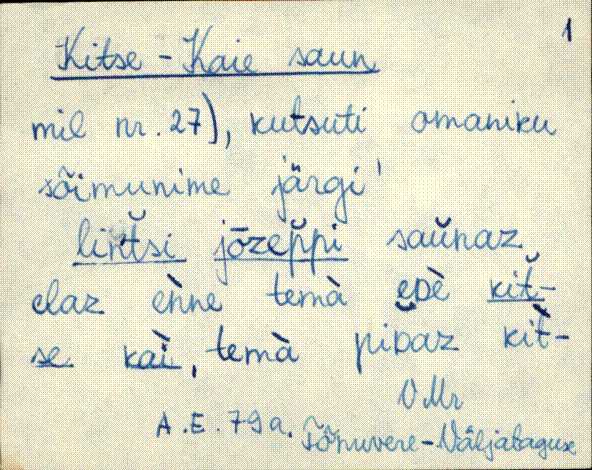 1
Kitse-Kaie saun
mil nr. 27), kutsuti omaniku
sõimunime järgi'
lint̆si jōzep̆pi saŭnaz
elaz èǹne temà ᴇᴅè kit̆-
se kaì, temà piᴅaz kìt-
V.Mr
A.E. 79a. Tõnuvere-Väljataguse